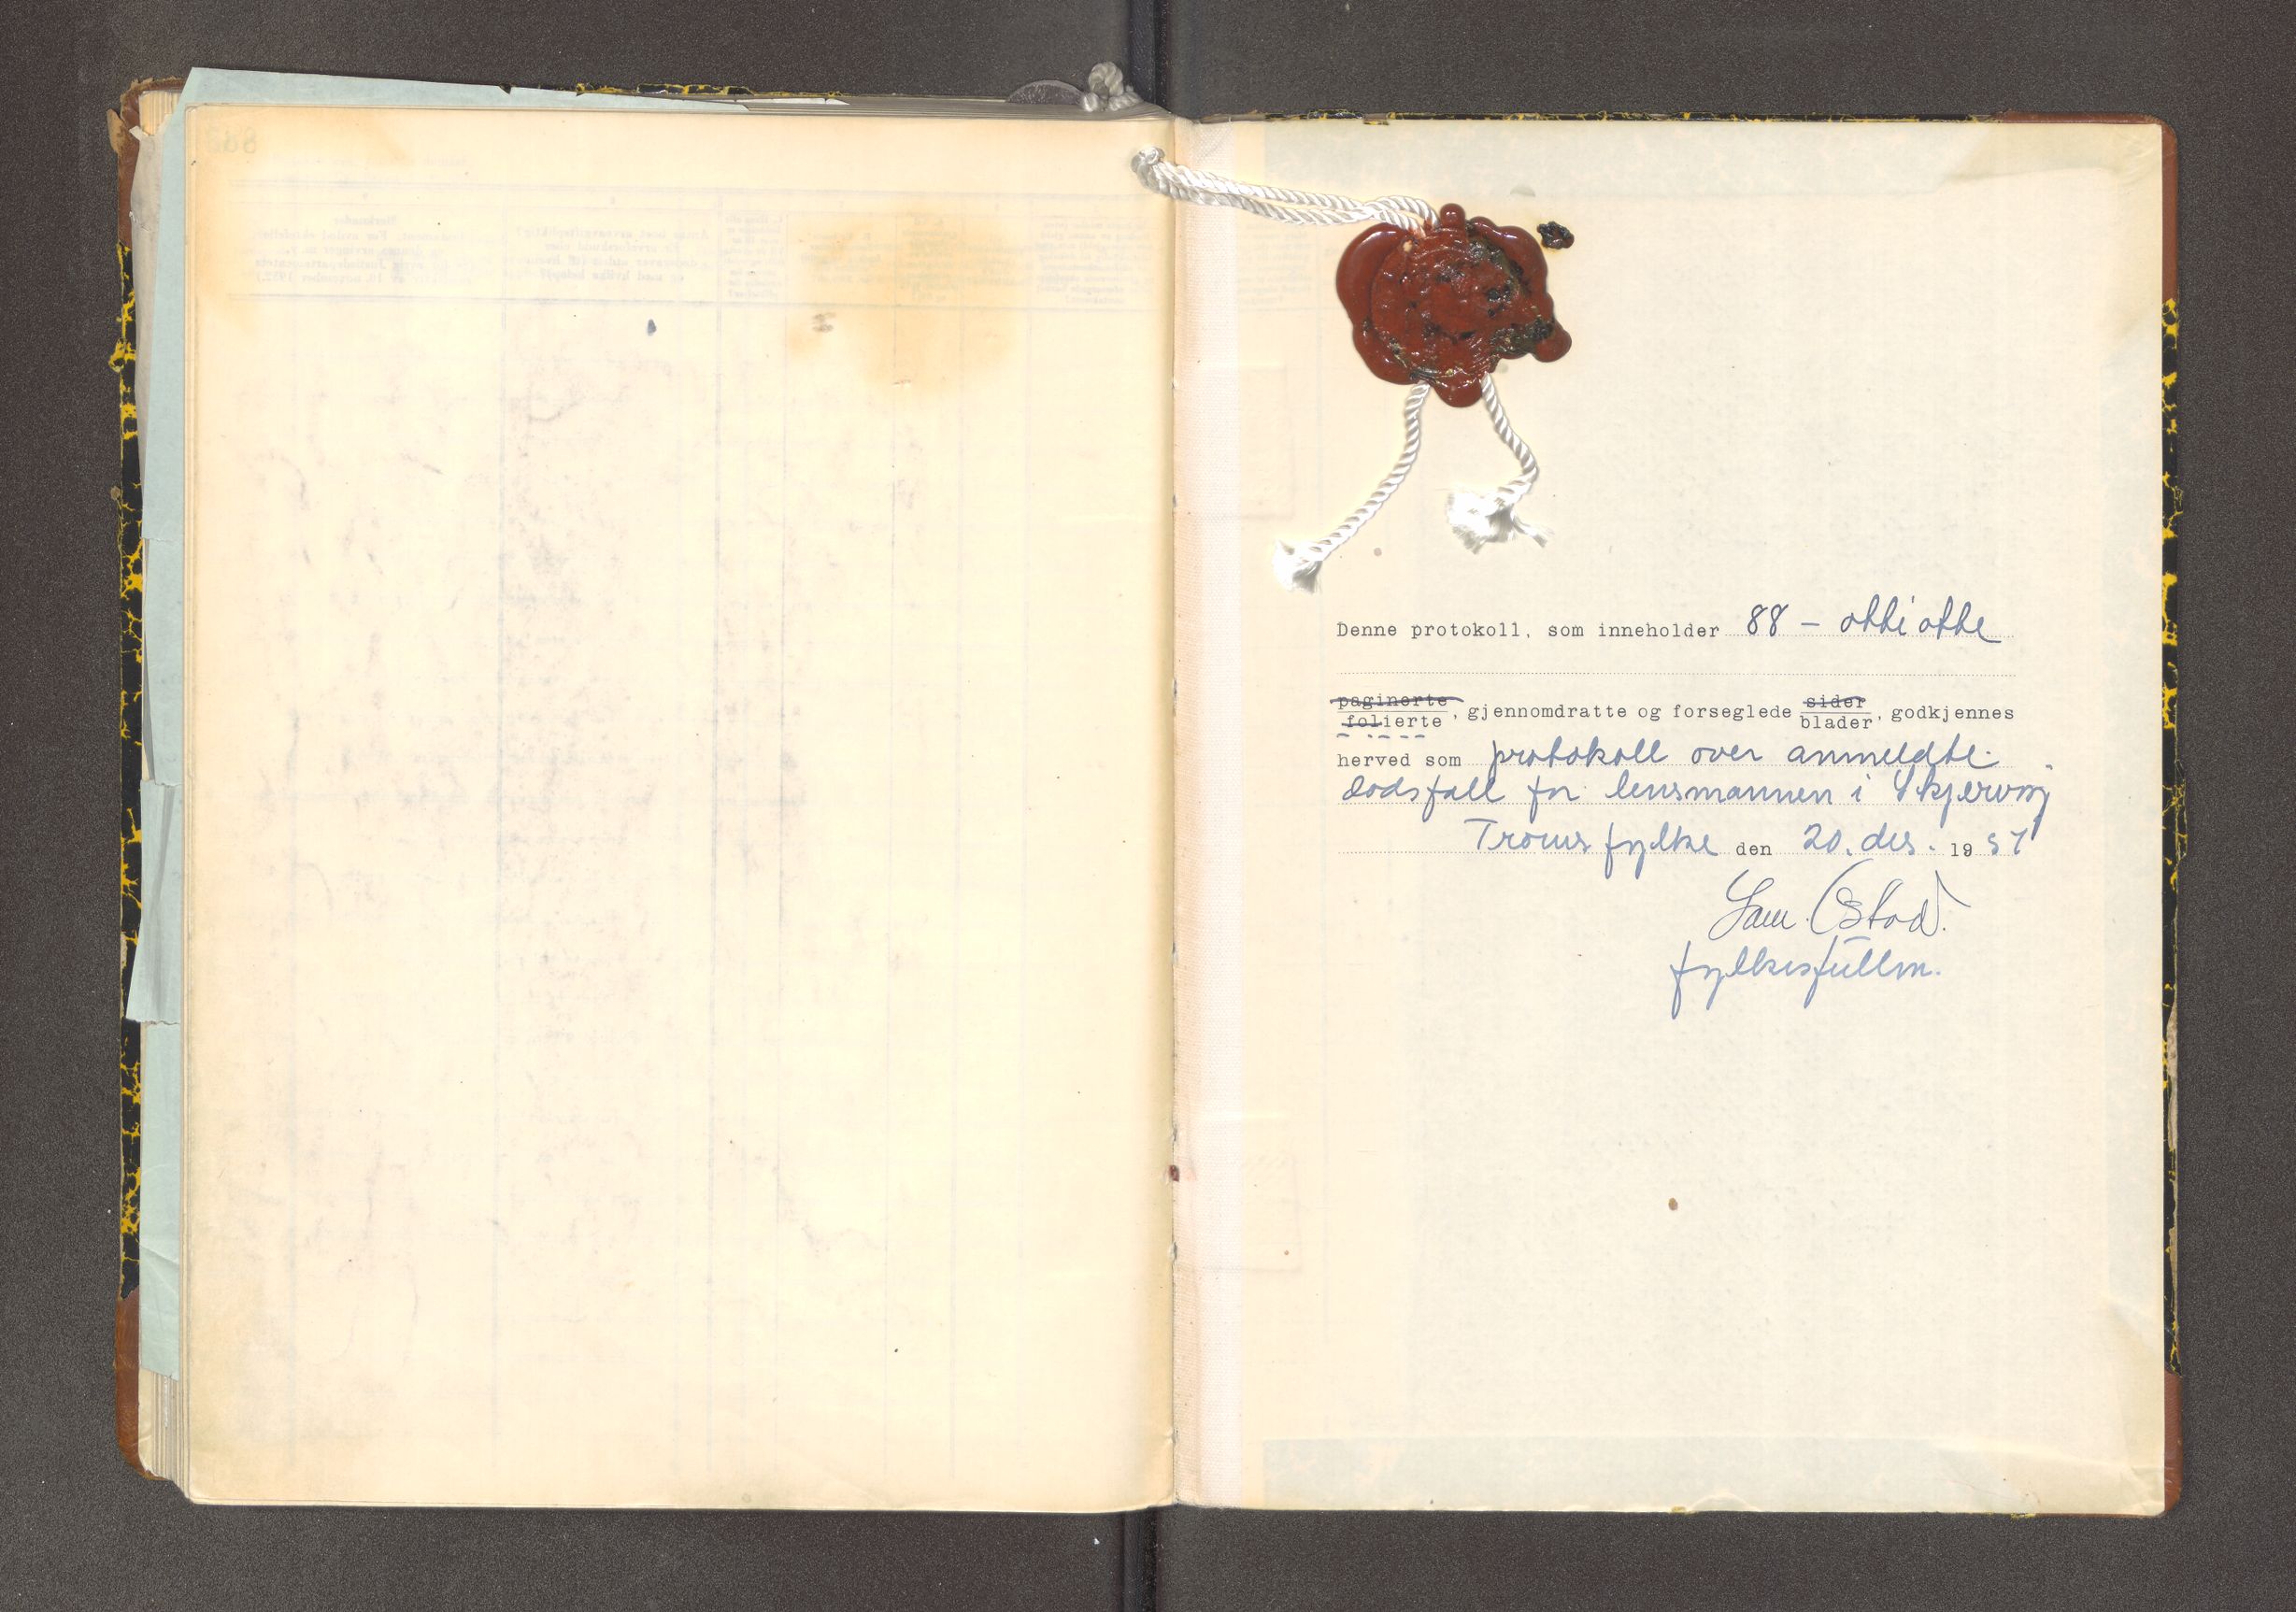 Denne protokoll, som inneholder 88 - åtti åtte
paginerte
folierte, gjennomdratte og forseglede sider
blader, godkjennes
herved som protokoll over anmeldte
dødsfall for lensmannen i Skjervøy
Troms fylke den 20. des. 1957
fylkesfullm.